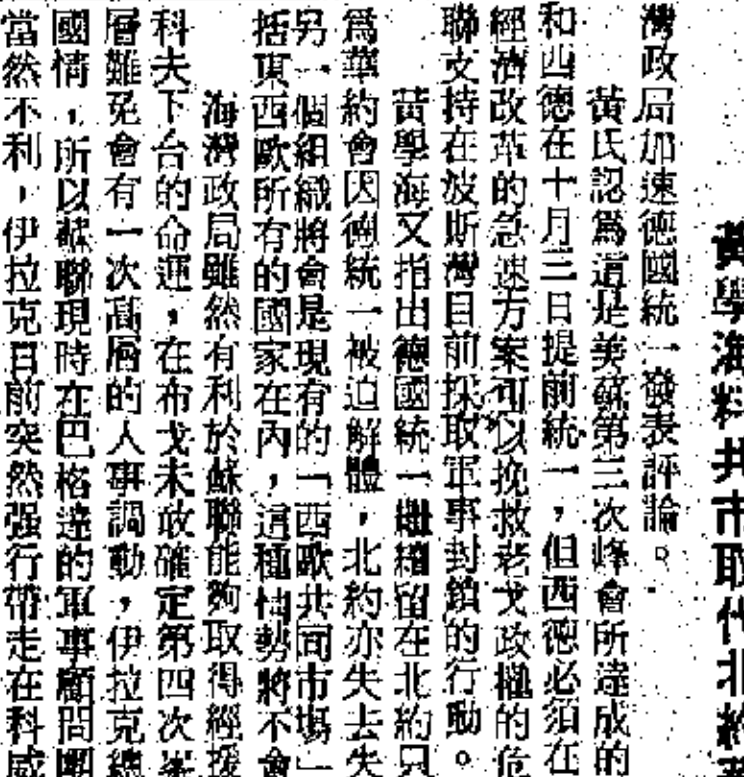 黃學海料共市取代北約
灣政局加速德國統一發表評論。
黃氏認爲這是美蘇第三次峰會所達成的
和西德在十月三日提前統一，但西德必須在
經濟改革的急速方案可以挽救老戈政權的危
聯支持在波斯灣目前採取軍事封鎖的行動。
黃學海又指出德國統一繼續留在北約只
爲華約會因德統一被迫解體，北約亦失去失
另一個組織將會是現有的「西歐共同市場」
括東西歐所有的國家在內，這種情勢將不會
海灣政局雖然有利於蘇聯能夠取得經援
科夫下台的命運，在布戈未敢確定第四次峯
層難免會有一次高層的人事調動，伊拉克總
國情，所以蘇聯現時在巴格達的軍事顧問團
當然不利，伊拉克目前突然强行帶走在科威